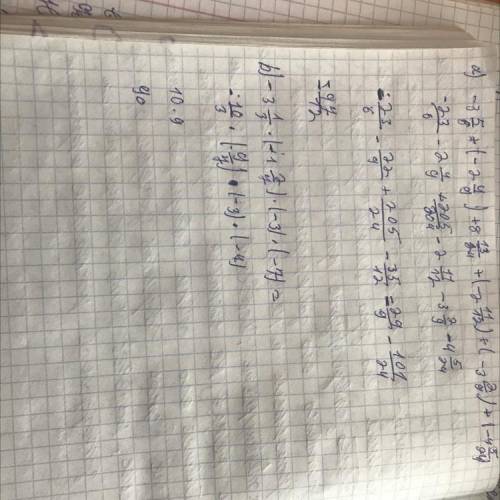 a) -3 5/6 + (-2 4/9) + 8 13/24 + (-2 11/12) + (-3 2/9) + (-4 5/24)
-23/6 - 2 4/9 + 205/24 - 2 11/12 - 3 2/9 - 4 5/24
-23/6 - 22/9 + 205/24 - 35/12 = 29/9 - 101/24
b) -3 1/3 · (-1 2/7) · (-3) · (-7) =
-10/3 · (-9/7) · (-3) · (-7)
10 · 9
90